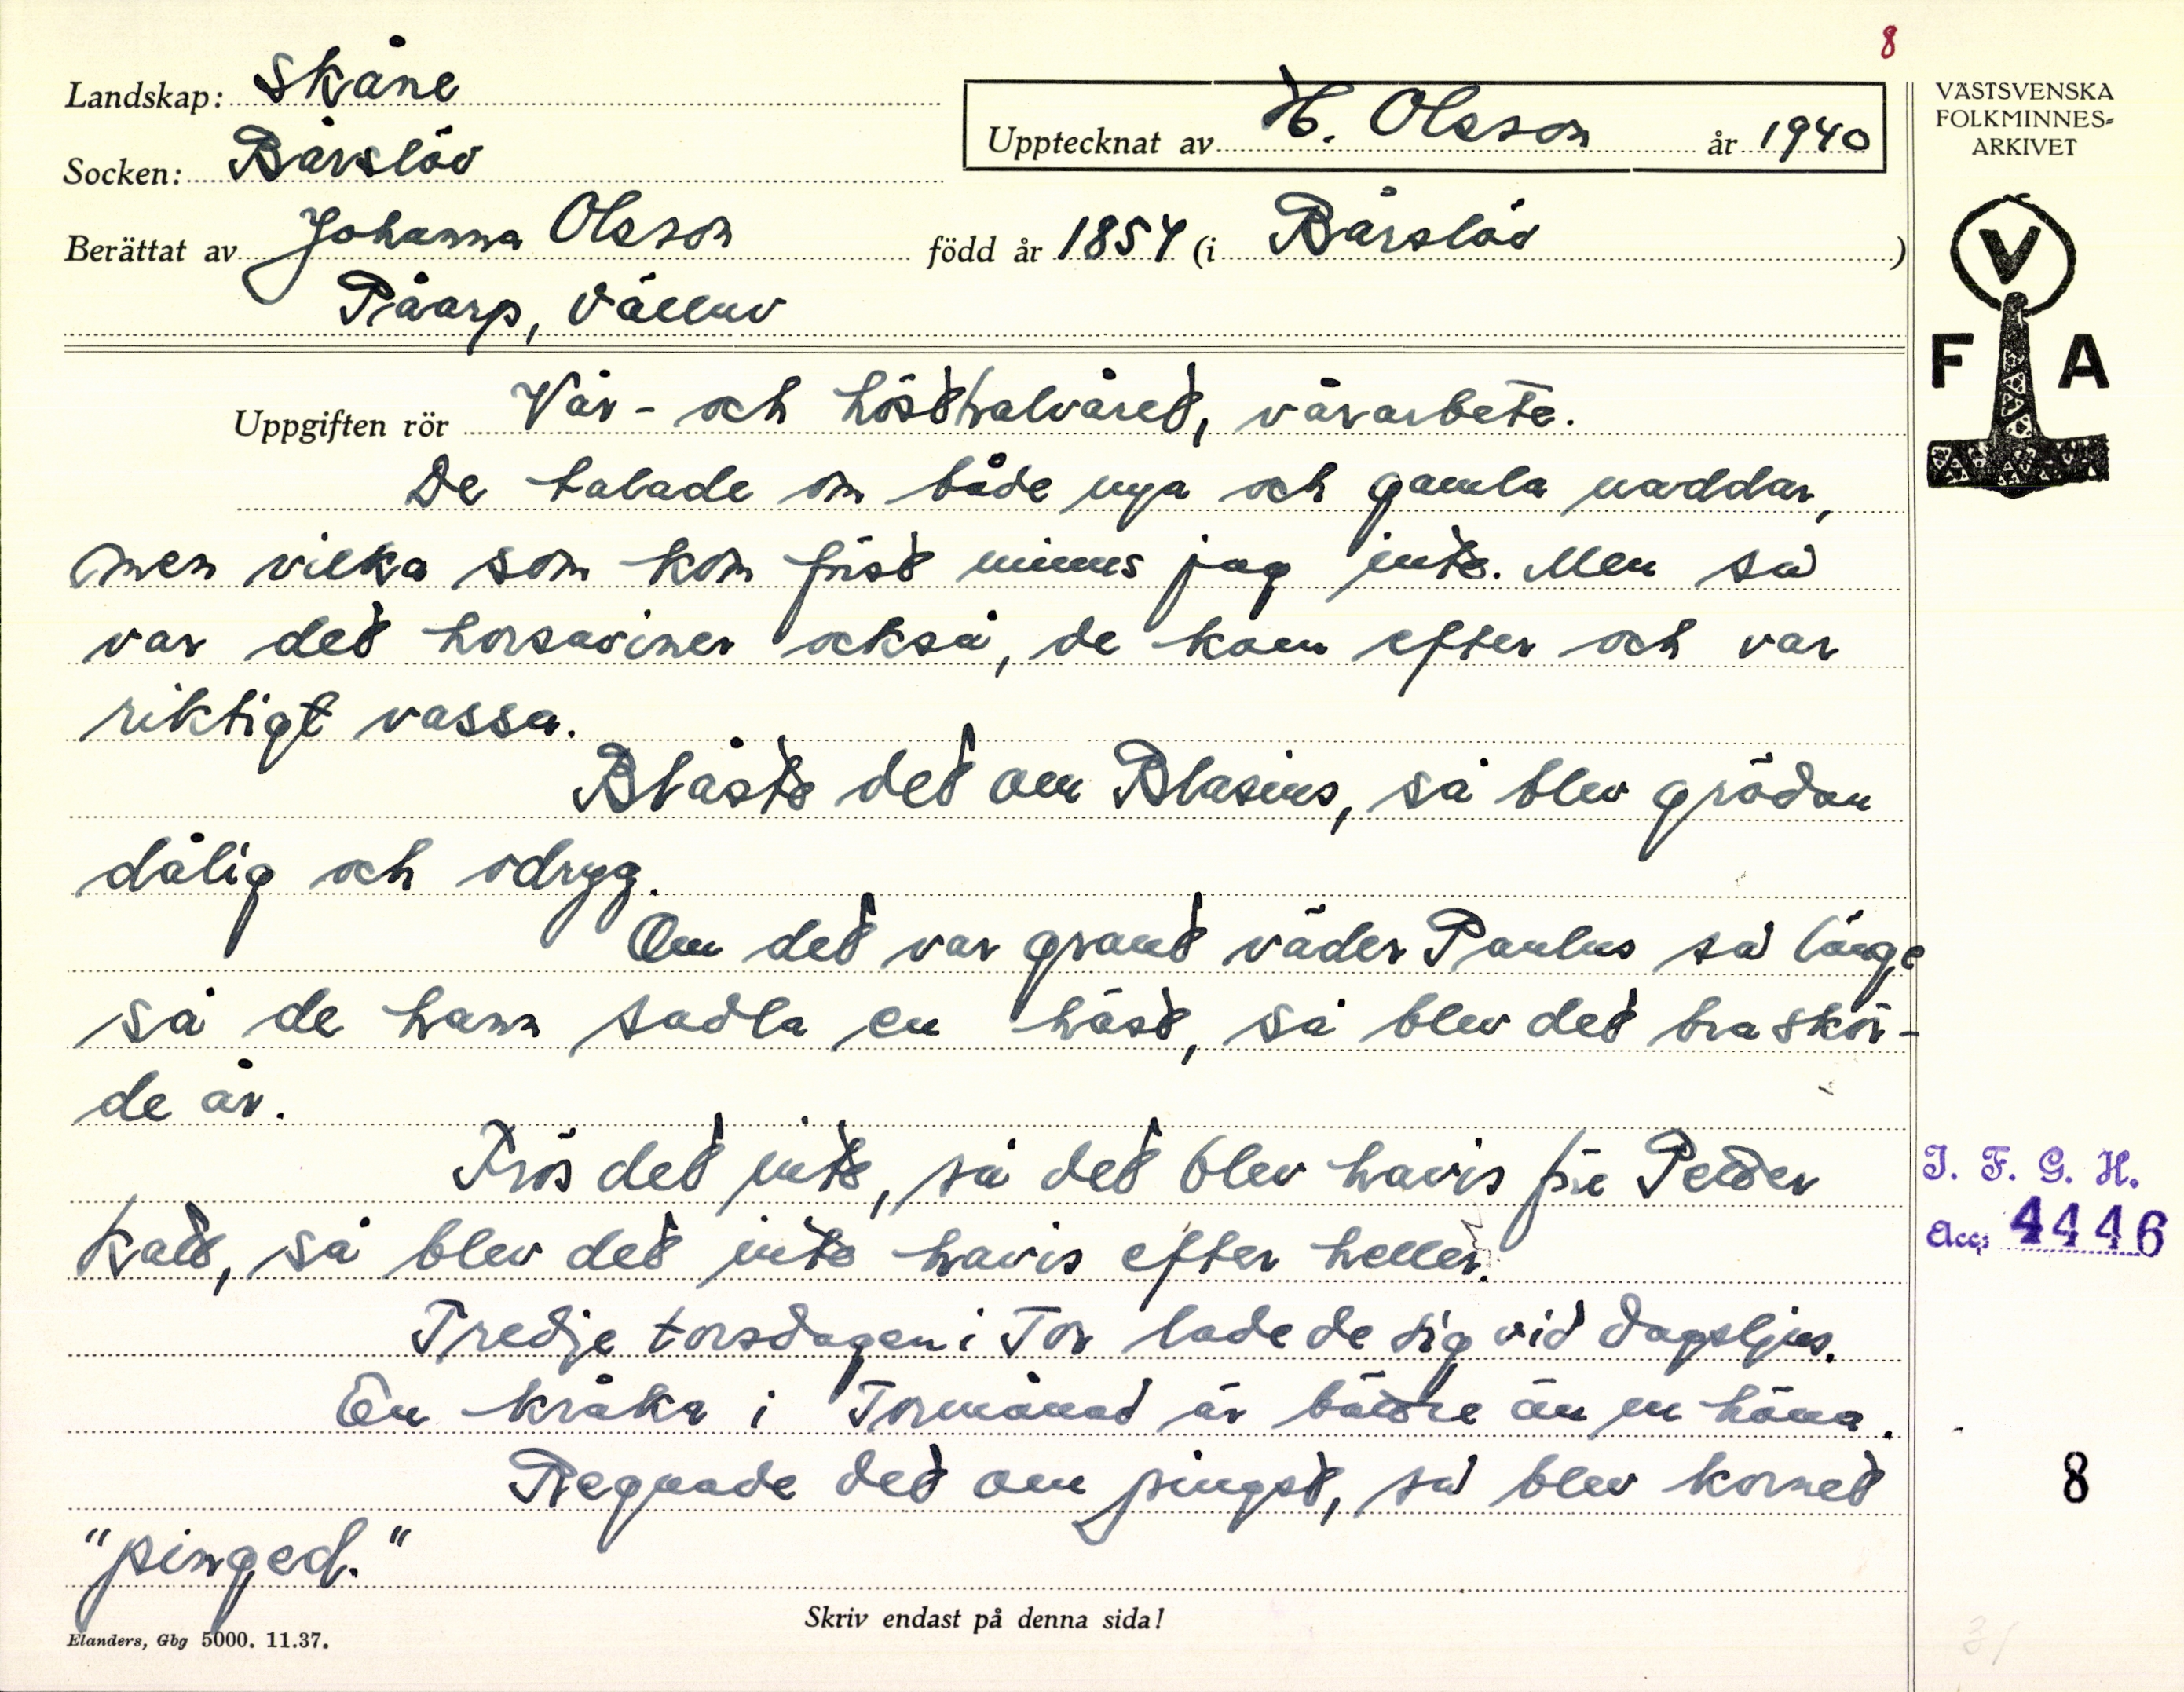 8
Landskap: Skåne
Upptecknat av H. Olsson år 1940
VÄSTSVENSKA
FOLKMINNES-
ARKIVET
Socken: Bårslöv
Berättat av Johanna Olsson född år 1854 (i Bårslöv)
Påarp, Välluv
V
F A
Uppgiften rör Vår- och hösthalvåret, vårarbete.
De talade om både nya och gamla naddar,
men vilka som kom först minns jag inte. Men så
var det horsaviner också, de kom efter och var
riktigt vassa.
Blåste det om Blasius, så blev grödan
dålig och odryg.
Om det var grant väder Paulus så länge
så de hann sadla en häst, så blev det bra skör-
de år.
Frös det inte, så det blev havis för Peder
katt, så blev det inte havis efter heller.
I. F. G. H.
Acc: 4446
Tredje torsdagen i Tor lade de sig vid dagsljus.
En kråka i Tormånad är bättre än en höna.
Regnade det om pingst, så blev kornet
8
"pinged."
Skriv endast på denna sida!
Elanders, Gbg 5000. 11.37.